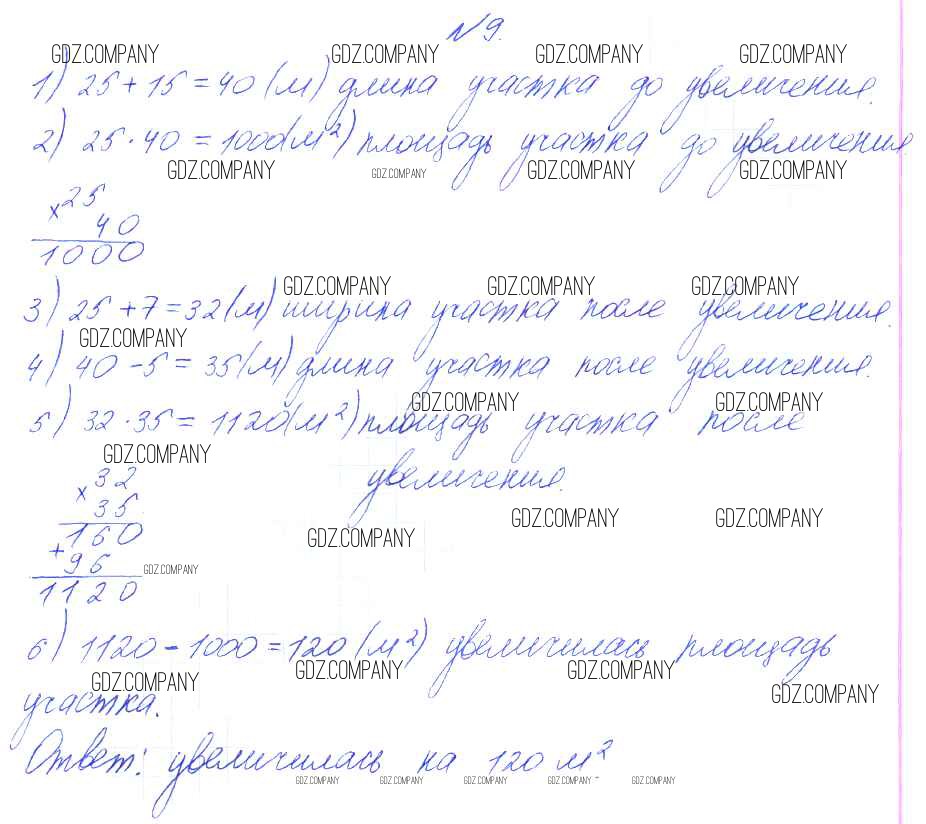 №9.
GDZ.COMPANY GDZ.COMPANY GDZ.COMPANY GDZ.COMPANY
1) 25 + 15 = 40 (м) длина участка до увеличения.
2) 25 · 40 = 1000(м²) площадь участка до увеличения
GDZ.COMPANY GDZ.COMPANY GDZ.COMPANY GDZ.COMPANY
× 25
40
1000
GDZ.COMPANY GDZ.COMPANY GDZ.COMPANY
3) 25 + 7 = 32 (м) ширина участка после увеличения.
GDZ.COMPANY
4) 40 - 5 = 35 (м) длина участка после увеличения.
GDZ.COMPANY GDZ.COMPANY
5) 32 · 35 = 1120(м²) площадь участка после
GDZ.COMPANY
увеличения.
× 32
35
GDZ.COMPANY GDZ.COMPANY
160
GDZ.COMPANY
+ 96
GDZ.COMPANY
1120
6) 1120 - 1000 = 120 (м²) увеличилась площадь
GDZ.COMPANY GDZ.COMPANY
GDZ.COMPANY GDZ.COMPANY
участка.
Ответ: увеличилась на 120 м²
GDZ.COMPANY GDZ.COMPANY GDZ.COMPANY GDZ.COMPANY GDZ.COMPANY